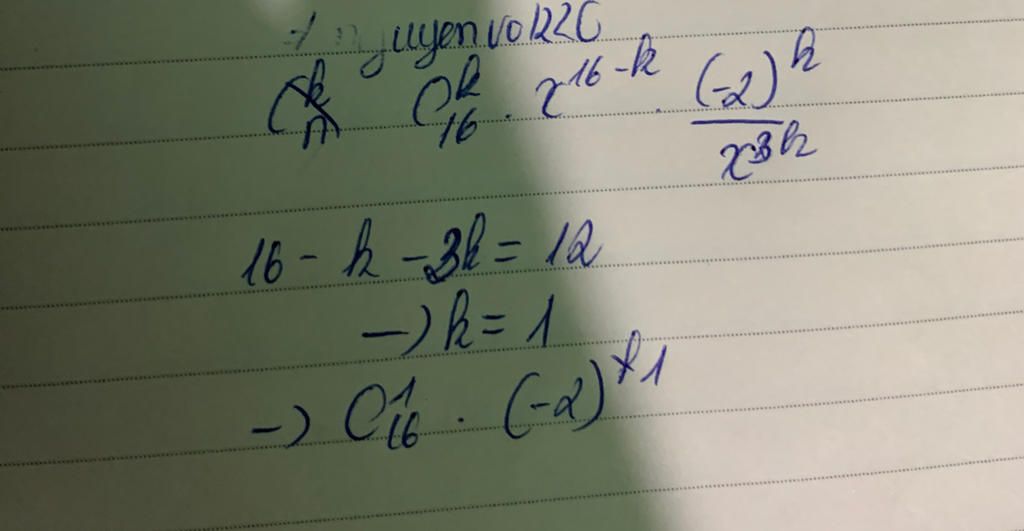 nguyenvo1220
C_16^k . x^(16-k) . (-2)^k / x^(3k)
16 - k - 3k = 12
→ k = 1
→ C_16^1 . (-2)^1